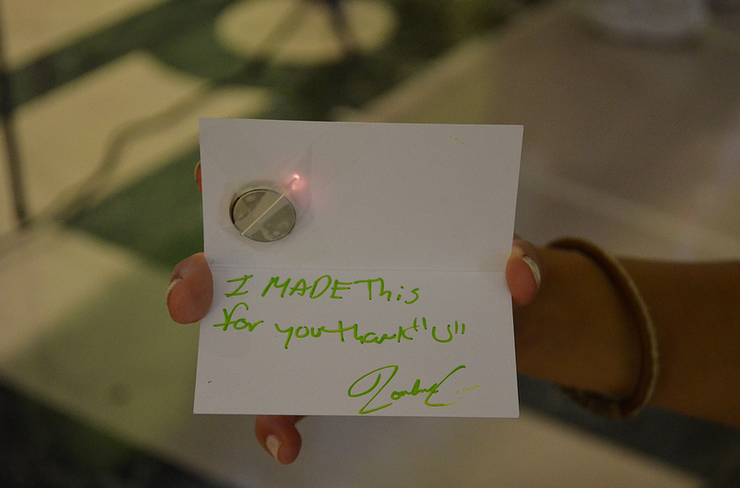 I MADE This
for you thank "U"